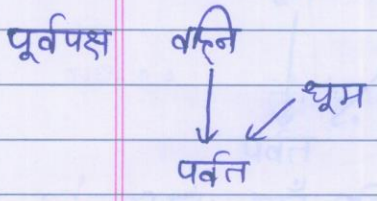 पूर्वपक्ष वह्नि
धूम
पर्वत